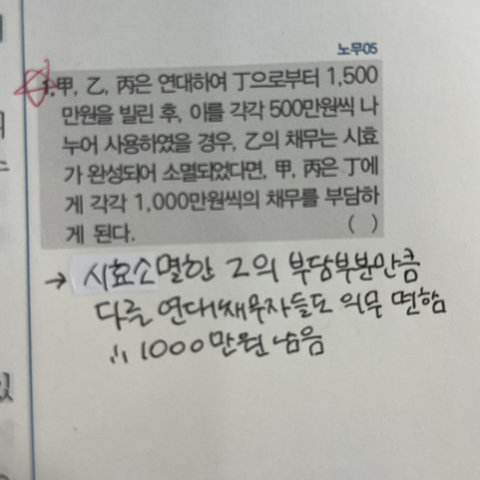 노무05
1. 甲, 乙, 丙은 연대하여 丁으로부터 1,500
만원을 빌린 후, 이를 각각 500만원씩 나
누어 사용하였을 경우, 乙의 채무는 시효
가 완성되어 소멸되었다면, 甲, 丙은 丁에
게 각각 1,000만원씩의 채무를 부담하
게 된다. ( )
→ 시효소멸한 그의 부담부분만큼
다른 연대채무자들도 의무 면함
∴ 1000만원 남음